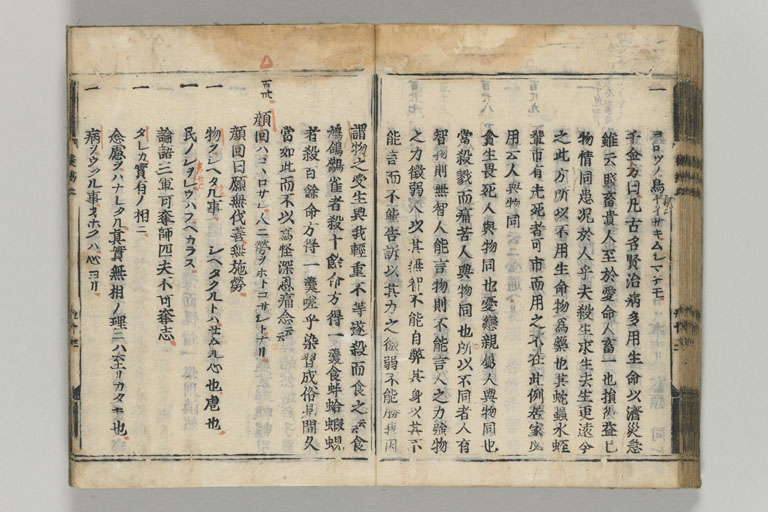 一 ヨロツノ鳥ケイサキムシマテモ
千金方曰凡古名賢治病多用生命以濟災急
雖云賤畜貴人至於愛命人畜一也損彼益己
物情同患況於人乎夫殺生求生去生更遠今
之此方所以不用生命物為藥也其蛇蟲水蛭
輩市有先死者可市而用之不在此例
用云人與物同
貪生畏死人與物同也愛戀親屬人與物同也
當殺戮而痛苦人與物同也所以不同者人有
智物則無智人能言物則不能言人之力強物
之力微弱人以其無智不能自弊其身以其不
能言而不能告訴以其力之微弱不能勝我因
謂物之受生與我輕重不等遂殺而食之云云食
鳩鴿鶉雀者殺十餘命方得一羹食蚌蛤蝦蜆
者殺百餘命方得一羹嗟乎染習成俗見聞久
當如此而不以為怪深思痛念云云
百卅 顔回ハコヽロサシ人二勞ヲホトコサシトナリ
顔回曰願無伐善無施勞
一 物ヲシヘタル事 シヘタクルトハ也
一 民ノシヲレウハフヘカラス
論語三軍可奪師匹夫不可奪志
一 タレカ實有ノ相二
念慮ヲハナレタル真實無相ノ理二ハ至リカタキ也
一 病ヲウクル事オホクハ心ヨリ